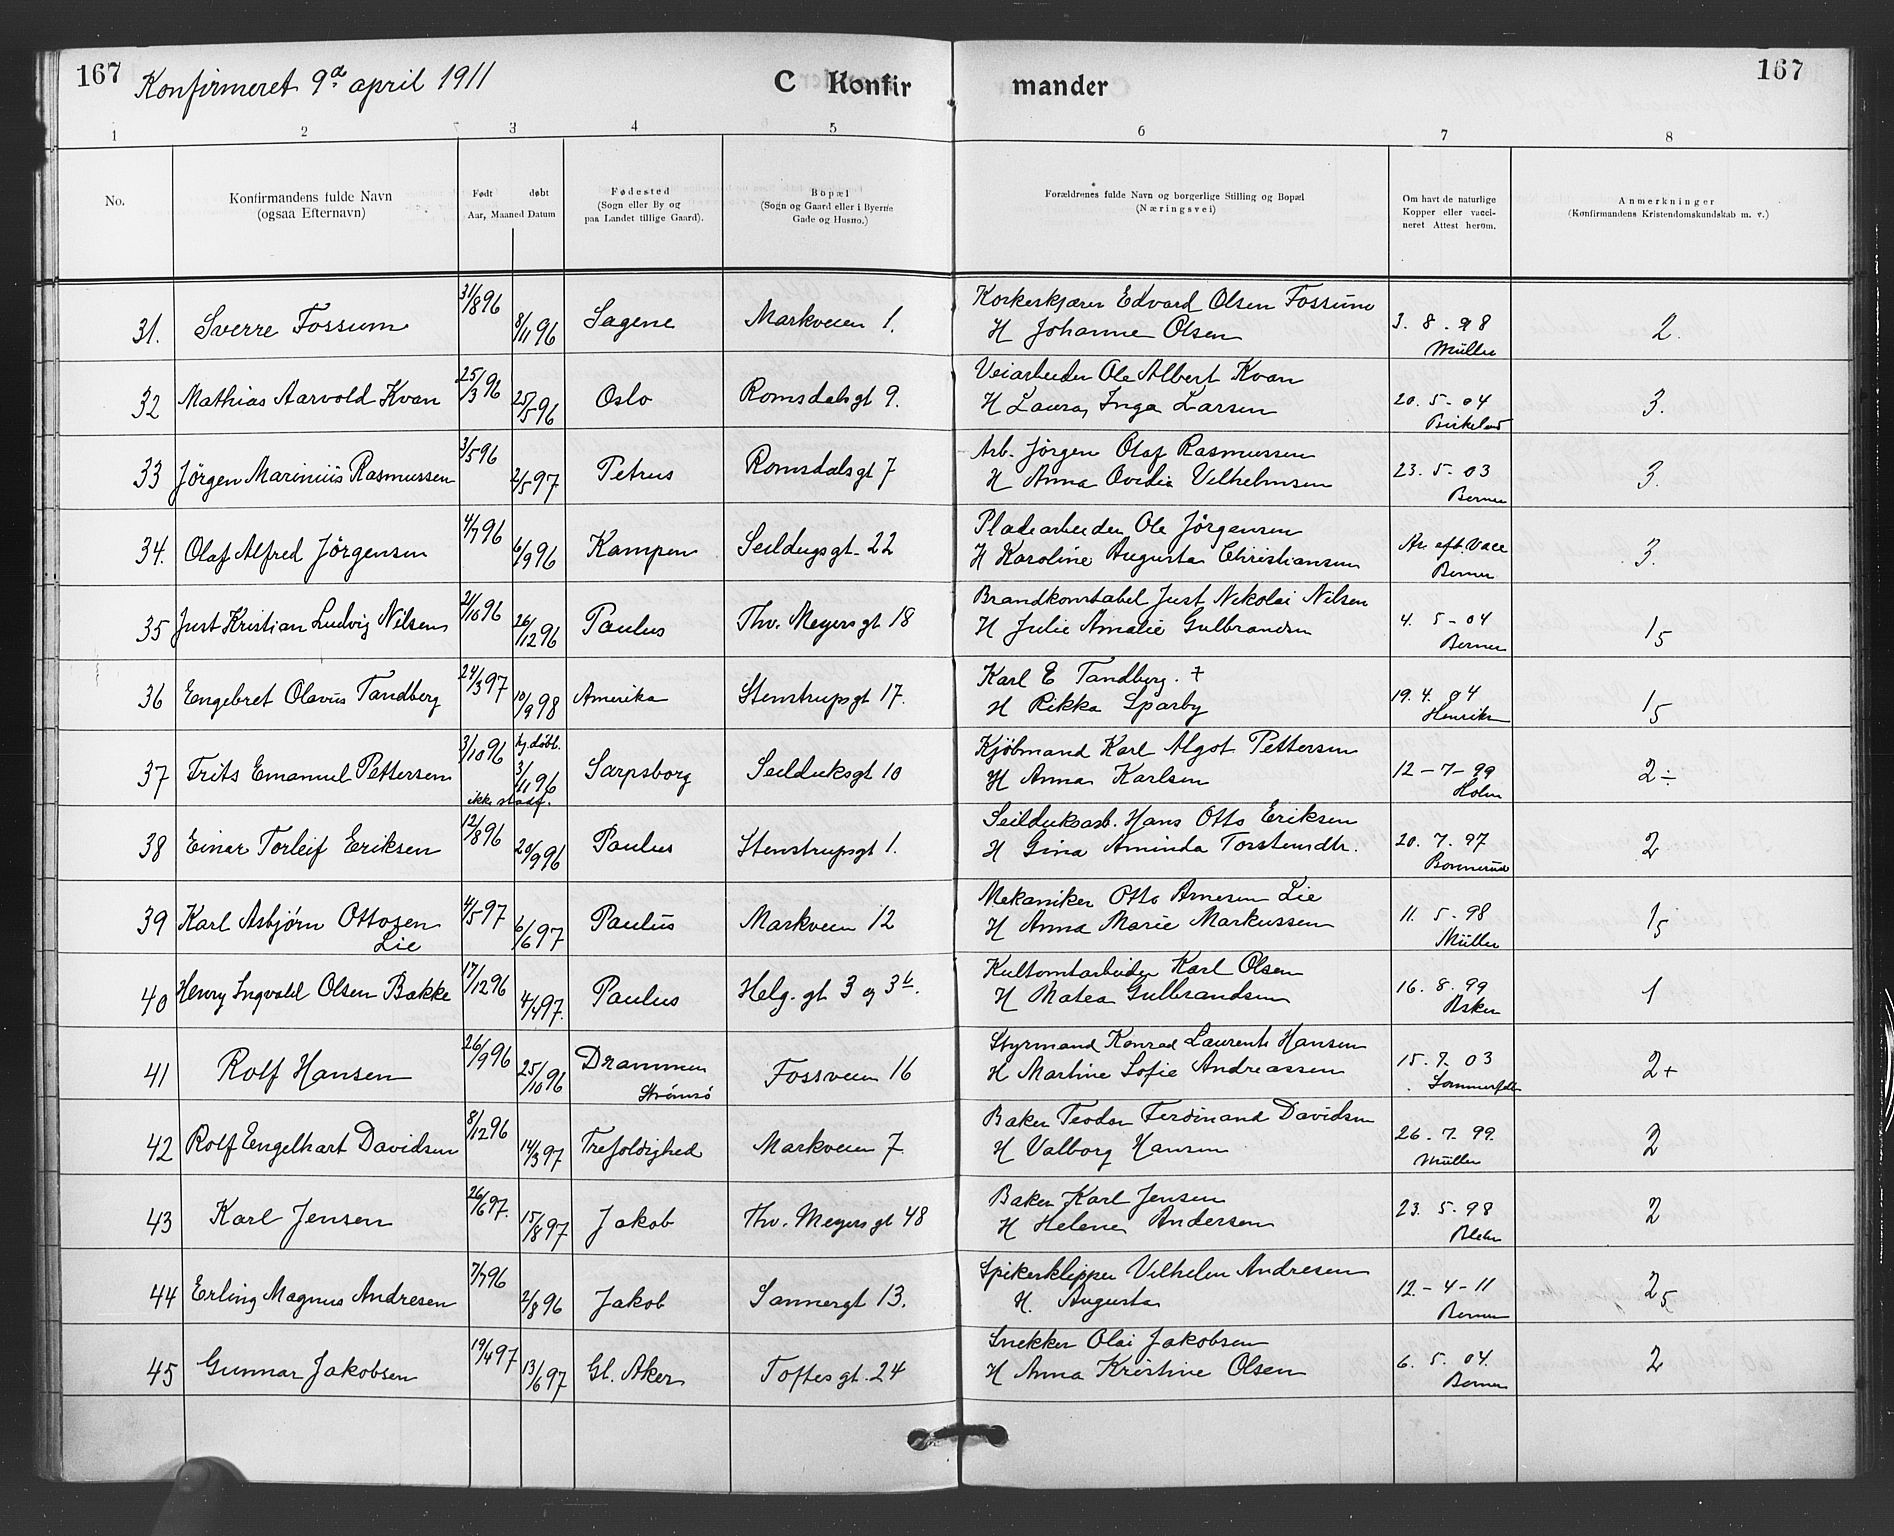 167 Konfirmeret 9de april 1911 C Konfir mander 167
1 2 3 4 5 6 7 8
No. Konfirmandens fulde Navn (ogsaa Efternavn) Født døbt Aar, Maaned Datum Fødested (Sogn eller By og paa Landet tillige Gaard). Bopæl (Sogn og Gaard eller i Byerne Gade og Husno.) Forældrenes fulde Navn og borgerlige Stilling og Bopæl (Næringsvei) Om havt de naturlige Kopper eller vaccineret Attest herom. Anmerkninger (Konfirmandens Kristendomskundskab m. v.)
31. Sverre Fossum 31/8 96 8/11 96 Sagene Markveien 1. Korkeskjærer Edvard Olsen Fossum 3. 8. 98 2.
H Johanne Olsen Müller
32 Mathias Aarvold Kvan 25/3 96 25/5 96 Oslo Romsdalsgt 9. Veiarbeider Ole Albert Kvan 20. 5. 04 3.
H Laura, Inga Larsen Birkeland
33 Jörgen Marinius Rasmussen 3/5 96 2/5 97 Petrus Romsdalsgt 7 Arb. Jörgen Olaf Rasmussen 23. 5. 03 3.
H Anna Ovidia Vilhelmsen Berner
34. Olaf Alfred Jörgensen 4/7 96 6/9 96 Kampen Seildugsgt. 22 Pladearbeider Ole Jörgensen Ar. eft. Vacc 3.
H Karoline Augusta Christiansen Berner
35 Just Kristian Ludvig Nilsen 21/10 96 26/12 96 Paulus Thv. Meyersgt 18 Brandkonstabel Just Nikolai Nilsen 4. 5 - 04 1 5
H Julie Amalie Gulbrandsen Berner
36 Engebret Olavus Tandberg 24/3 97 10/9 98 Amerika Stenstrupsgt 17. Karl E Tandberg. † 19. 4. 04 1 5
H Rikka Sparby Henriks
37 Frits Emanuel Pettersen 3/10 96 hj. døbt. 3/11 96 ikke stadf. Sarpsborg Seilduksgt 10 Kjöbmand Karl Algot Pettersen 12 - 7 - 99 2 ÷
H Anna Karlsen Holm
38 Einar Torleif Eriksen 12/8 96 20/9 96 Paulus Stenstrupsgt 1. Seilduksarb. Hans Otto Eriksen 20. 7. 97 2
H Gina Aminda Torstendtr.
39 Karl Asbjörn Ottosen Lie 4/5 97 6/6 97 Paulus Markveien 12 Mekaniker Otto Arnesen Lie 11. 5 - 98 1 5
H Anna Marie Markussen Müller
40 Henry Ingvald Olsen Bakke 17/12 96 4/4 97. Paulus Helg. gt 3 og 3b. Karl Olsen 16. 8. 99 1
H Matea Gulbrandsen
41 Rolf Hansen 26/9 96 25/10 96 Drammen Strömsö Fossveien 16 Styrmand Konrad Laurents Hansen 15. 7. 03 2+
H Martine Sofie Andreassen Sommerfelt
42 Rolf Engelhart Davidsen 8/12 96 14/3 97 Trefoldighed Markveien 7. Baker Teodor Ferdinand Davidsen 26. 7. 99. 2
H Valborg Hansen Müller
43 Karl Jensen 26/6 97. 15/8 97 Jakob Thv. Meyersgt 48 Baker Karl Jensen 23. 5 - 98 2
H Helene Andersen
44 Erling Magnus Andresen 7/7 96 2/8 96 Jakob Sannergt 13. Spikerklipper Vilhelm Andresen 12. - 4 - 11 2 5
H. Augusta Berner
45 Gunnar Jakobsen 19/4 97 13/6 97 Gl. Aker Toftes gt. 24 Snekker Olai Jakobsen 6. 5. 04. 2
H Anna Kristine Olsen Berner